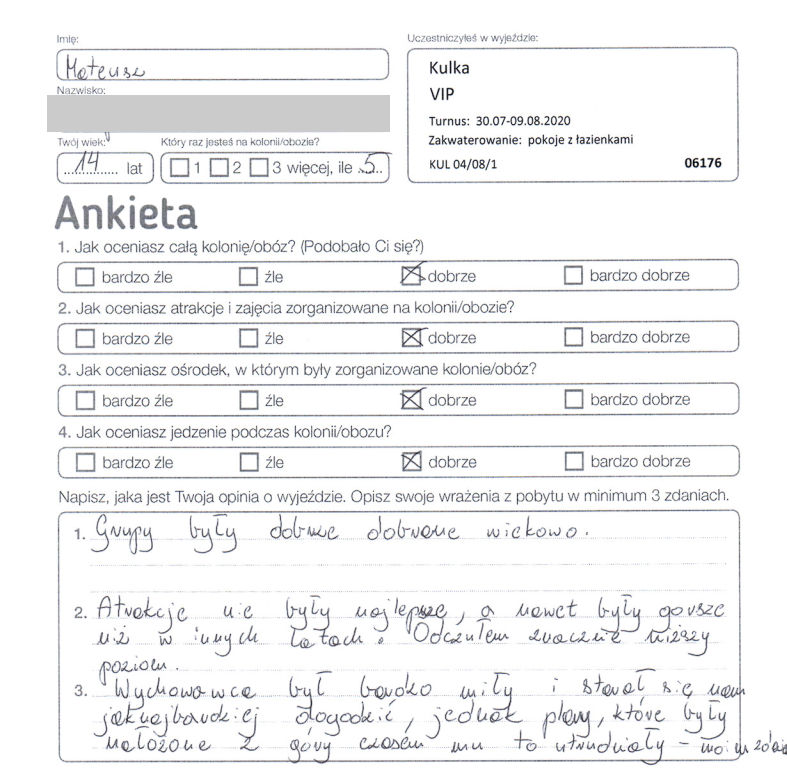 Imię:
Mateusz
Nazwisko:
Twój wiek:
14 lat
Który raz jesteś na kolonii/obozie?
1 2 3 więcej, ile 5
Uczestniczyłeś w wyjeździe:
Kulka
VIP
Turnus: 30.07-09.08.2020
Zakwaterowanie: pokoje z łazienkami
KUL 04/08/1 06176
Ankieta
1. Jak oceniasz całą kolonię/obóz? (Podobało Ci się?)
bardzo źle źle dobrze bardzo dobrze
2. Jak oceniasz atrakcje i zajęcia zorganizowane na kolonii/obozie?
bardzo źle źle dobrze bardzo dobrze
3. Jak oceniasz ośrodek, w którym były zorganizowane kolonie/obóz?
bardzo źle źle dobrze bardzo dobrze
4. Jak oceniasz jedzenie podczas kolonii/obozu?
bardzo źle źle dobrze bardzo dobrze
Napisz, jaka jest Twoja opinia o wyjeździe. Opisz swoje wrażenia z pobytu w minimum 3 zdaniach.
1. Grupy były dobrze dobrane wiekowo.
2. Atrakcje nie były najlepsze, a nawet były gorsze
niż w innych latach. Odczułem znacznie niższy
poziom.
3. Wychowawca był bardzo miły i starał się nam
jaknajbardziej dogodzić, jednak plany, które były
nałożone z góry czasem mu to utrudniały - moim zda